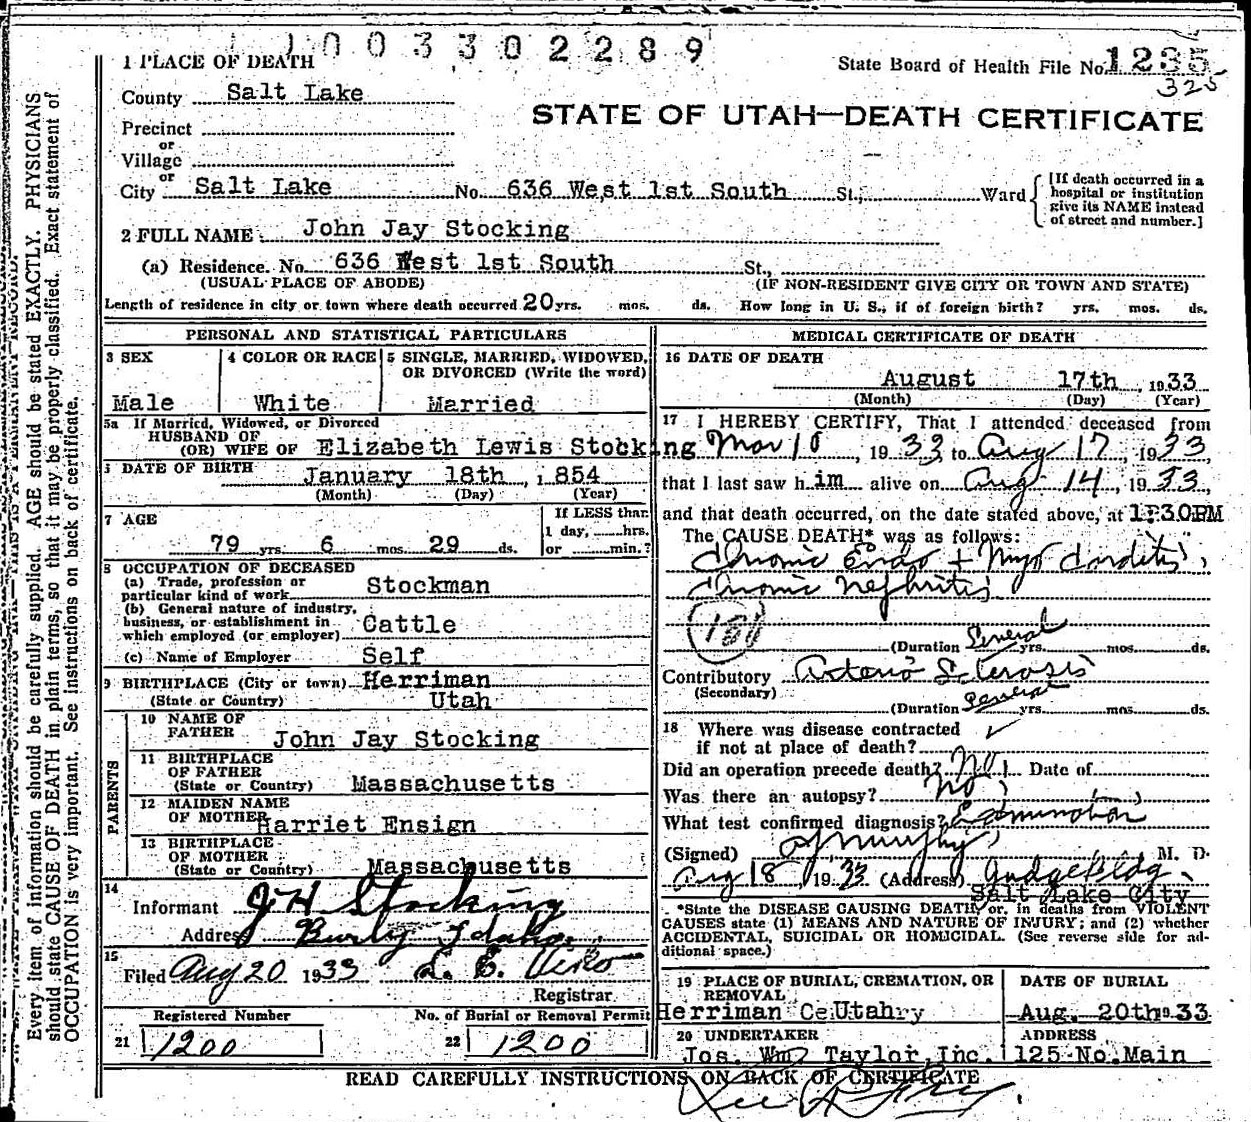 1003302289
1 PLACE OF DEATH
State Board of Health File No. 1235
325
County Salt Lake
STATE OF UTAH—DEATH CERTIFICATE
Precinct
or
Village
or
City Salt Lake No. 636 West 1st South St.; Ward
[If death occurred in a
hospital or institution
give its NAME instead
of street and number.]
2 FULL NAME John Jay Stocking
(a) Residence. No. 636 West 1st South St.,
(USUAL PLACE OF ABODE) (IF NON-RESIDENT GIVE CITY OR TOWN AND STATE)
Length of residence in city or town where death occurred 20 yrs. mos. ds. How long in U. S., if of foreign birth? yrs. mos. ds.
PERSONAL AND STATISTICAL PARTICULARS
3 SEX
Male
4 COLOR OR RACE
White
5 SINGLE, MARRIED, WIDOWED,
OR DIVORCED (Write the word)
Married
5a If Married, Widowed, or Divorced
HUSBAND OF
(OR) WIFE OF Elizabeth Lewis Stocking
DATE OF BIRTH
January 18th , 1 854
(Month) (Day) (Year)
7 AGE
79 yrs. 6 mos. 29 ds.
If LESS than
1 day, hrs.
or min.?
8 OCCUPATION OF DECEASED
(a) Trade, profession or
particular kind of work Stockman
(b) General nature of industry,
business, or establishment in
which employed (or employer) Cattle
(c) Name of Employer Self
9 BIRTHPLACE (City or town) Herriman
(State or Country) Utah
PARENTS
10 NAME OF
FATHER John Jay Stocking
11 BIRTHPLACE
OF FATHER
(State or Country) Massachusetts
12 MAIDEN NAME
OF MOTHER Harriet Ensign
13 BIRTHPLACE
OF MOTHER
(State or Country) Massachusetts
14
Informant J H Stocking
Address Burley Idaho.
15
Filed Aug 20 1933
Registrar
Registered Number
21 1200
No. of Burial or Removal Permit
22 1200
MEDICAL CERTIFICATE OF DEATH
16 DATE OF DEATH
August 17th , 1933
(Month) (Day) (Year)
17 I HEREBY CERTIFY, That I attended deceased from
Mar 10, 1933 to Aug 17, 1933
that I last saw him alive on Aug 14, 1933,
and that death occurred, on the date stated above, at 1:30PM
The CAUSE DEATH* was as follows:
Chronic Endo + Myo Carditis,
Chronic Nephritis
131
(Duration Several yrs. mos. ds.
Contributory Arterio Sclerosis
(Secondary)
(Duration yrs. mos. ds.
18 Where was disease contracted
if not at place of death?
Did an operation precede death? No Date of
Was there an autopsy? No
What test confirmed diagnosis? Examination
(Signed) AJ Murphy M. D.
Aug 18, 1933 (Address) Judge Bldg.
Salt Lake City
*State the DISEASE CAUSING DEATH, or, in deaths from VIOLENT
CAUSES state (1) MEANS AND NATURE OF INJURY; and (2) whether
ACCIDENTAL, SUICIDAL OR HOMICIDAL. (See reverse side for ad-
ditional space.)
19 PLACE OF BURIAL, CREMATION, OR
REMOVAL
Herriman Ce Utah ry
DATE OF BURIAL
Aug. 20th 33
20 UNDERTAKER
Jos. Wm Taylor, Inc.
ADDRESS
125 No. Main
READ CAREFULLY INSTRUCTIONS ON BACK OF CERTIFICATE
Every item of information should be carefully supplied. AGE should be stated EXACTLY. PHYSICIANS
should state CAUSE OF DEATH in plain terms, so that it may be properly classified. Exact statement of
OCCUPATION is very important. See instructions on back of certificate.